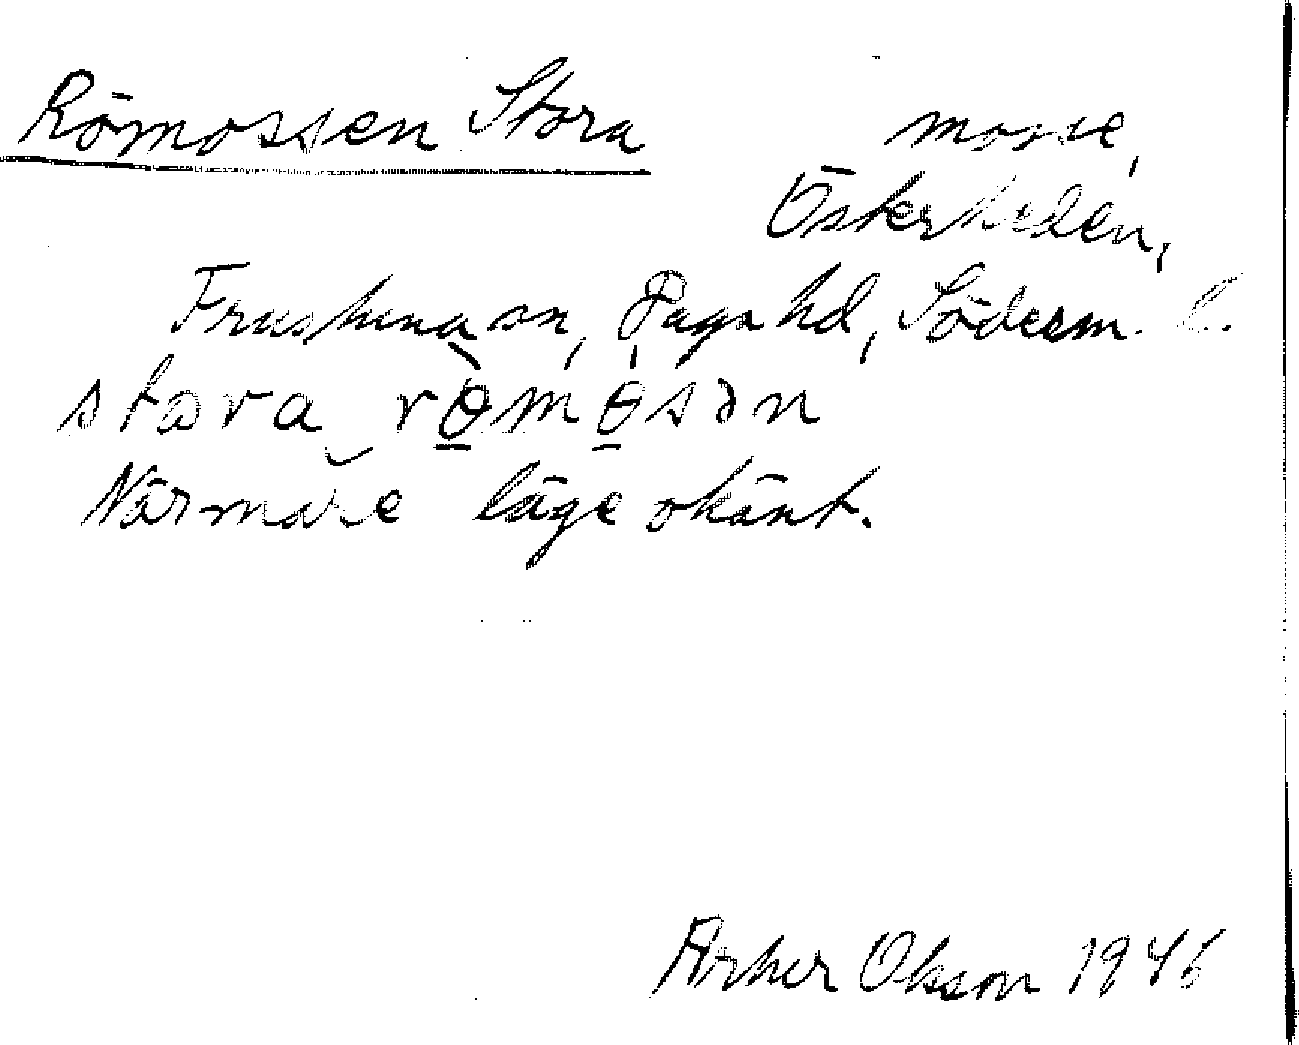 Römossen Stora mosse,
Österheden,
Frustunasn, Daga hd, Söderm. l.
stora römösən
Närmare läge okänt.
Arthur Olsson 1946